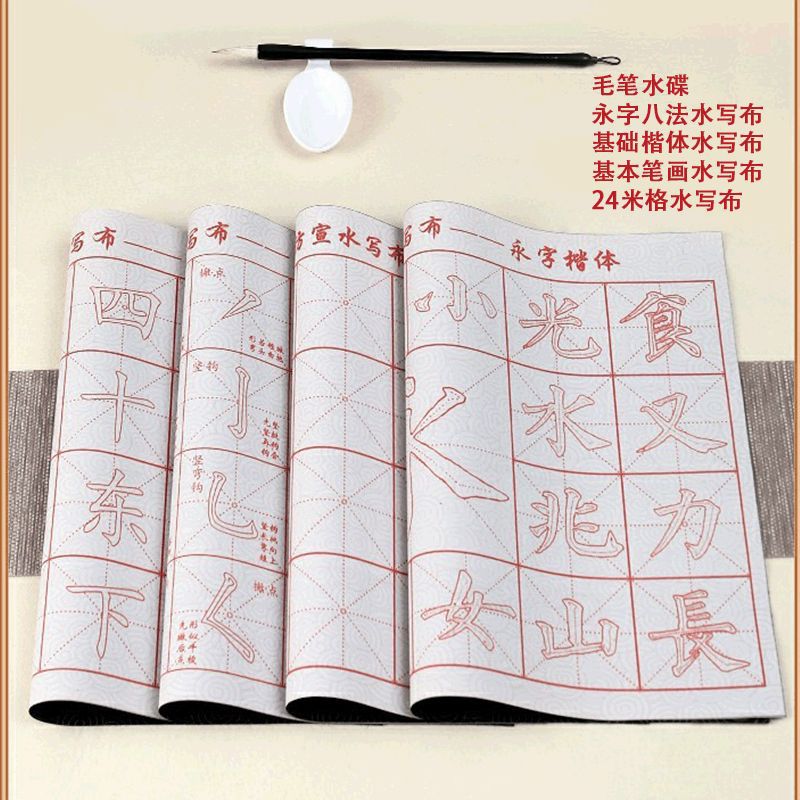 毛笔水碟
永字八法水写布
基础楷体水写布
基本笔画水写布
24米格水写布
写布
四
十
东
下
写布
撇点
竖钩
竖弯钩
撇点
宣水写布
写布
永字楷体
小 光 食
永 水 又
兆 力
女 山 長